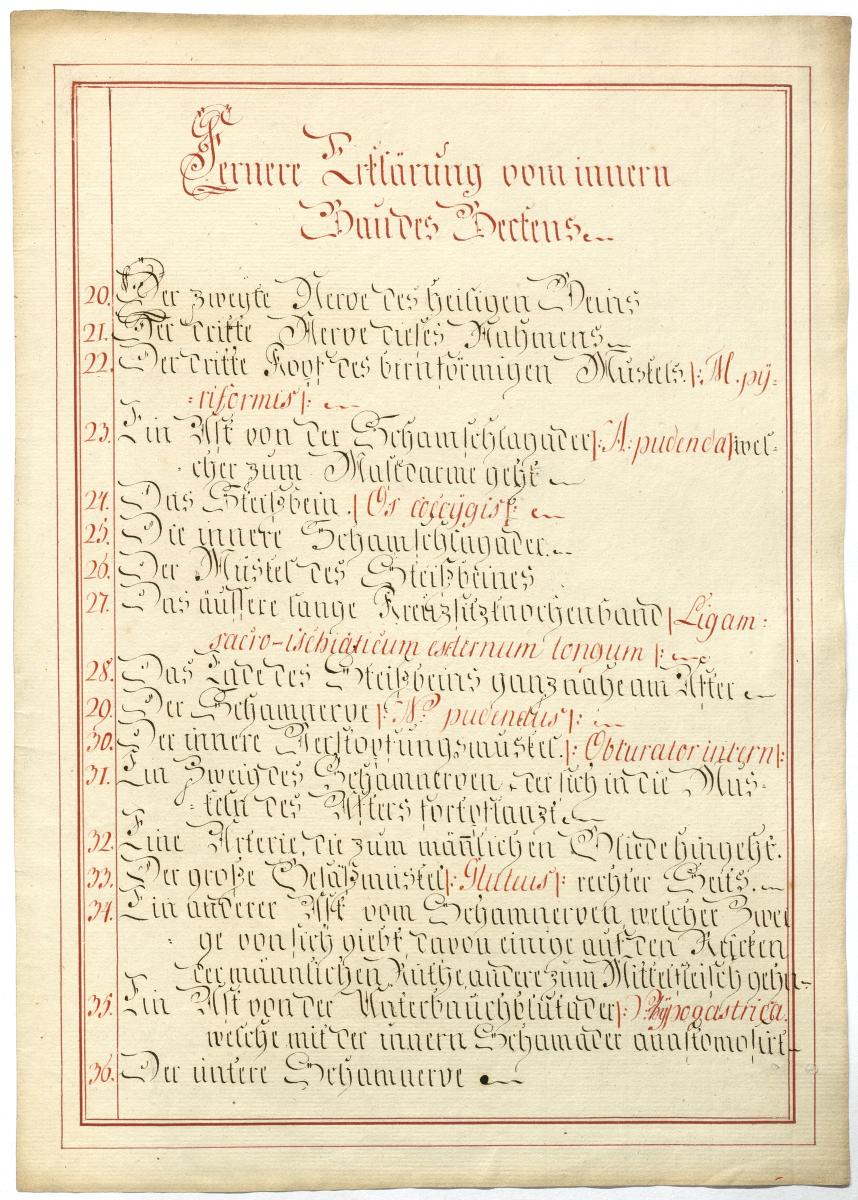 Fernere Erklärung vom innern
Bau des Beckens
20. Der zweyte Nerve des heiligen Beins
21. Der dritte Nerve dieses Nahmens
22. Der dritte Kopf des birnförmigen Muskels. |: M. pÿ-
riformis :|
23. Ein Ast von der Schamschlagader |: A. pudenda :| wel-
cher zum Mastdarme geht
24. Das Steißbein. |: Os coccÿgis :|
25. Die innere Schamschlagader.
26. Der Muskel des Steißbeines
27. Das äussere lange Kreuzsitzknochenband |: Ligam:
sacro-ischiaticum externum longum :|
28. Das Ende des Steißbeins ganz nahe am After
29. Der Schamnerve |: N. pudendus :|
30. Der innere Verstopfungsmuskel. |: Obturator intern :|
31. Ein Zweig des Schamnerven, der sich in die Mus-
keln des Afters fortpflanzt
32. Eine Arterie, die zum mañlichen Gliede hingeht.
33. Der große Gesäßmuskel |: Gluteus :| rechter Seits.
34. Ein anderer Ast vom Schamnerven, welcher Zwei
ge von sich giebt, davon einige auf den Rücken
der männlichen Ruthe, andere zum Mittelfleisch gehn
35. Ein Ast von der Unterbauchblutader |: V. hÿpogastrica.
welche mit der innern Schamader anastomosirt
36. Der untere Schamnerve